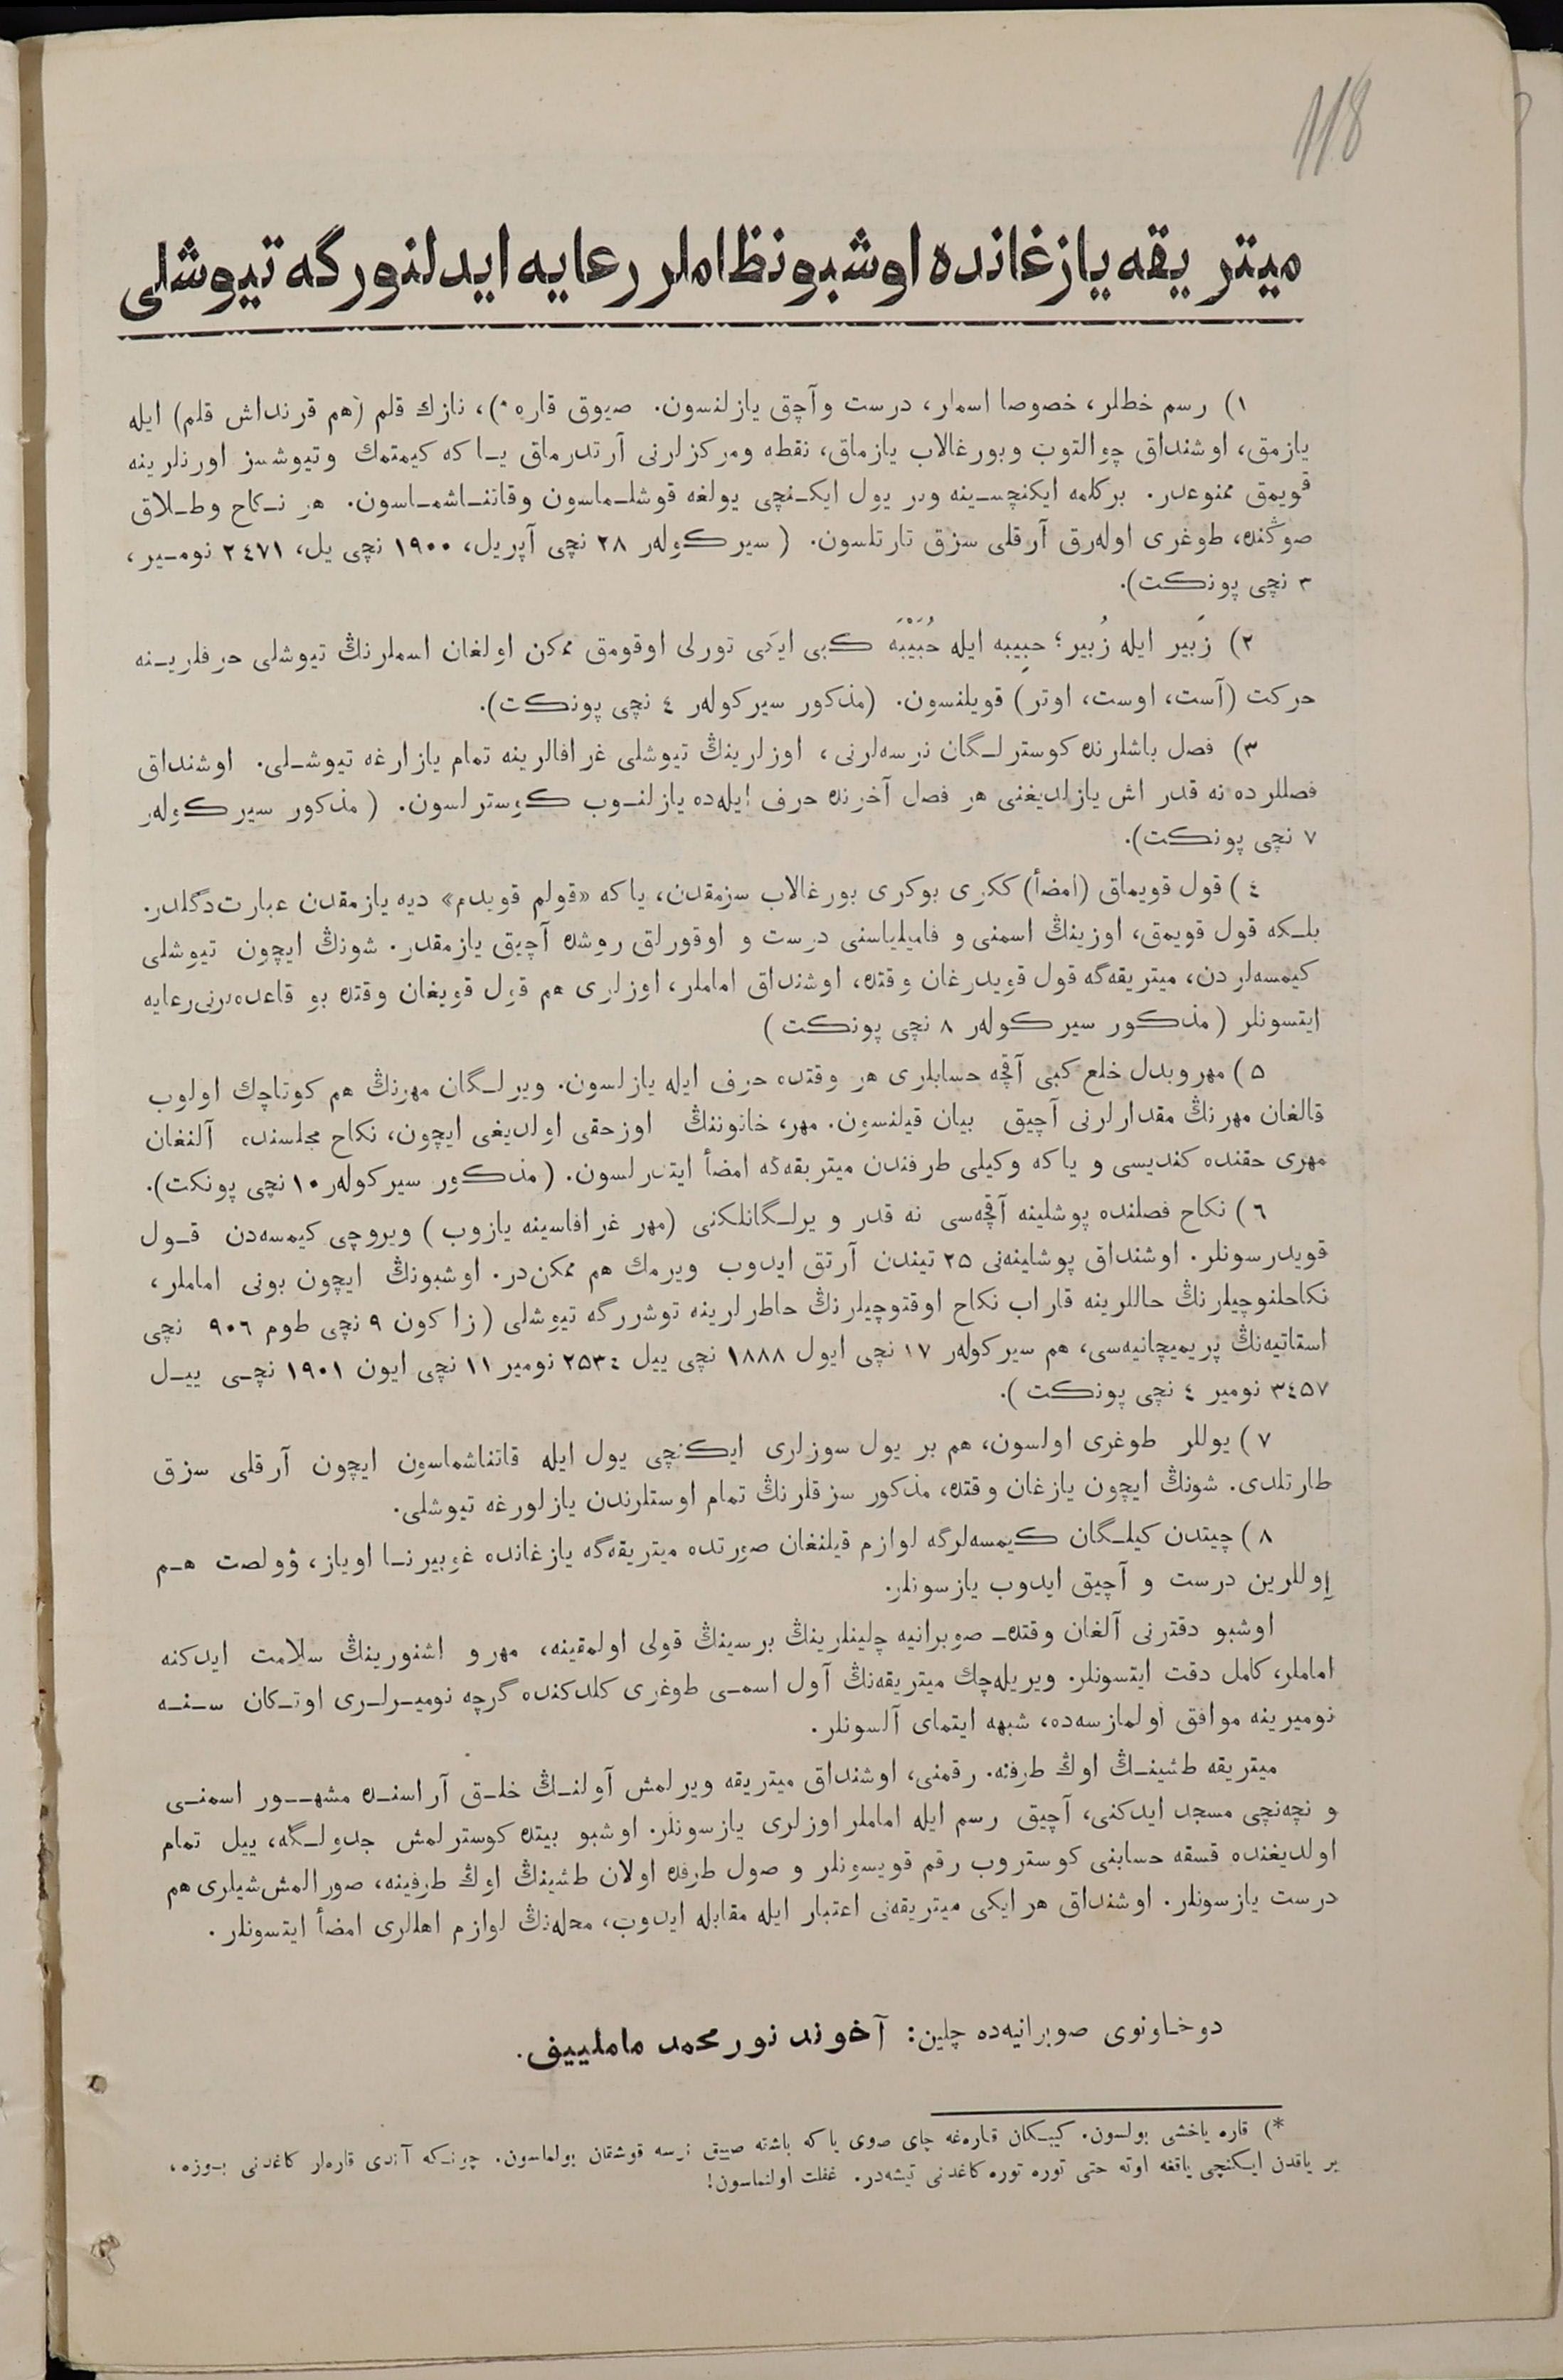 118
میتریقه یازغانده اوشبو نظاملر رعایه ایدلنورگه تیوشلی
١) رسم خطلر، خصوصا اسملر، درست وآچق یازلنسون. صیوق قاره *)، نازك قلم (هم قرنداش قلم) ایله
یازمق، اوشنداق چوالتوب وبورغالاب یازماق، نقطه ومرکزلرنی آرتدرماق یـا که کیمتمك وتیوشسز اورنلرینه
قویمق ممنوعدر. برکلمه ایکنچسـینه وبر یول ایکـنچی یولغه قوشلـماسون وقاتنـاشمـاسون. هر نـکاح وطـلاق
صوڭنده، طوغری اولەرق آرقلی سزق تارتلسون. (سیرکولەر ٢٨ نچی آپریل، ١٩٠٠ نچی یل، ٢٤٧١ نومـیر،
٣ نچی پونکت).
٢) زَبیر ایله زُبیر؛ حبِیبه ایله حُبَیْبَه کبی ایکی تورلی اوقومق ممکن اولغان اسملرنڭ تیوشلی حرفلریـنه
حرکت (آست، اوست، اوتر) قویلنسون. (مذکور سیرکولەر ٤ نچی پونکت).
٣) فصل باشلرنده کوسترلـگان نرسەلرنی، اوزلرینڭ تیوشلی غرافالرینه تمام یازارغه تیوشـلی. اوشنداق
فصللرده نه قدر اش یازلدیغنی هر فصل آخرنده حرف ایله‌ده یازلنـوب کوسترلسون. (مذکور سیرکولەر
٧ نچی پونکت).
٤) قول قویماق (امضأ) ککری بوکری بورغالاب سزمقدن، یا که «قولم قویدم» دیه یازمقدن عبارت دگلدر.
بلـکه قول قویمق، اوزینڭ اسمنی و فامیلیاسنی درست و اوقورلق روشده آچیق یازمقدر. شونڭ ایچون تیوشلی
کیمسەلردن، میتریقەگه قول قویدرغان وقتده، اوشنداق اماملر، اوزلری هم قول قویغان وقتده بو قاعده‌لرنی رعایه
ایتسونلر (مذکور سیرکولەر ٨ نچی پونکت)
٥) مهر وبدل خلع کبی آقچه حسابلری هر وقتده حرف ایله یازلسون. ویرلـگان مهرنڭ هم کوتاچك اولوب
قالغان مهرنڭ مقدارلرنی آچیق بیان قیلنسون. مهر، خانوننڭ اوز حقی اولدیغی ایچون، نکاح مجلسنده آلنغان
مهری حقنده کندیسی و یا که وکیلی طرفندن میتریقەگه امضأ ایتدرلسون. (مذکور سیرکولەر ١٠ نچی پونکت).
٦) نکاح فصلنده پوشلینه آقچەسی نه قدر ویرلـگانلکنی (مهر غرافاسینه یازوب) ویروچی کیمسەدن قـول
قویدرسونلر. اوشنداق پوشلینەنی ٢٥ تیندن آرتق ایدوب ویرمك هم ممکن‌در. اوشبونڭ ایچون بونی اماملر،
نکاحلنوچیلرنڭ حاللرینه قاراب نکاح اوقتوچیلرنڭ خاطرلرینه توشررگه تیوشلی (زاکون ٩ نچی طوم ٩٠٦ نچی
استاتیەنڭ پریمیچانیەسی، هم سیرکولەر ١٧ نچی ایول ١٨٨٨ نچی ییل ٢٥٣٤ نومیر ١١ نچی ایون ١٩٠١ نچـی ییـل
٣٤٥٧ نومیر ٤ نچی پونکت).
٧) یوللر طوغری اولسون، هم بر یول سوزلری ایکنچی یول ایله قاتناشماسون ایچون آرقلی سزق
طارتلدی. شونڭ ایچون یازغان وقتده، مذکور سزقلرنڭ تمام اوستلرندن یازلورغه تیوشلی.
٨) چیتدن کیلـگان کیمسەلرگه لوازم قیلنغان صورتده میتریقەگه یازغانده غوبیرنـا اویاز، ۋولصت هـم
إوللرین درست و آچیق ایدوب یازسونلر.
اوشبو دفترنی آلغان وقتده صوبرانیه چلینلرینڭ برسینڭ قولی اولمقینه، مهر و اشنورینڭ سلامت ایدکنه
اماملر، کامل دقت ایتسونلر. ویریلەچك میتریقەنڭ آول اسمـی طوغری کلدکنده گرچه نومیـرلـری اوتـکان سـنـه
نومیرینه موافق اولمازسەده، شبهه ایتمای آلسونلر.
میتریقه طشینـڭ اوڭ طرفنه رقمنی، اوشنداق میتریقه ویرلمش آولنـڭ خلـق آراسنـده مشهــور اسمنـی
و نچەنچی مسجد ایدکنی، آچیق رسم ایله اماملر اوزلری یازسونلر. اوشبو بیتده کوسترلمش جدولـگه، ییل تمام
اولدیغنده قسقه حسابنی کوستروب رقم قویسونلر و صول طرفده اولان طشینڭ اوڭ طرفینه، صورالمش شیلری هم
درست یازسونلر. اوشنداق هر ایکی میتریقەنی اعتبار ایله مقابله ایدوب، محلەنڭ لوازم اهللری امضأ ایتسونلر.
دوخـاونوی صوبرانیەده چلین: آخوند نورمحمد ماملییف.
*) قاره یاخشی بولسون. کیبـکان قـارەغه چای صوی یا که باشته صییق نرسه قوشقان بولماسون. چونـکه آندی قارەلر کاغدنی بـوزه،
بر یاقدن ایـکنچی یاقغه اوته حتی توره توره کاغدنی تیشەدر. غفلت اولنماسون!